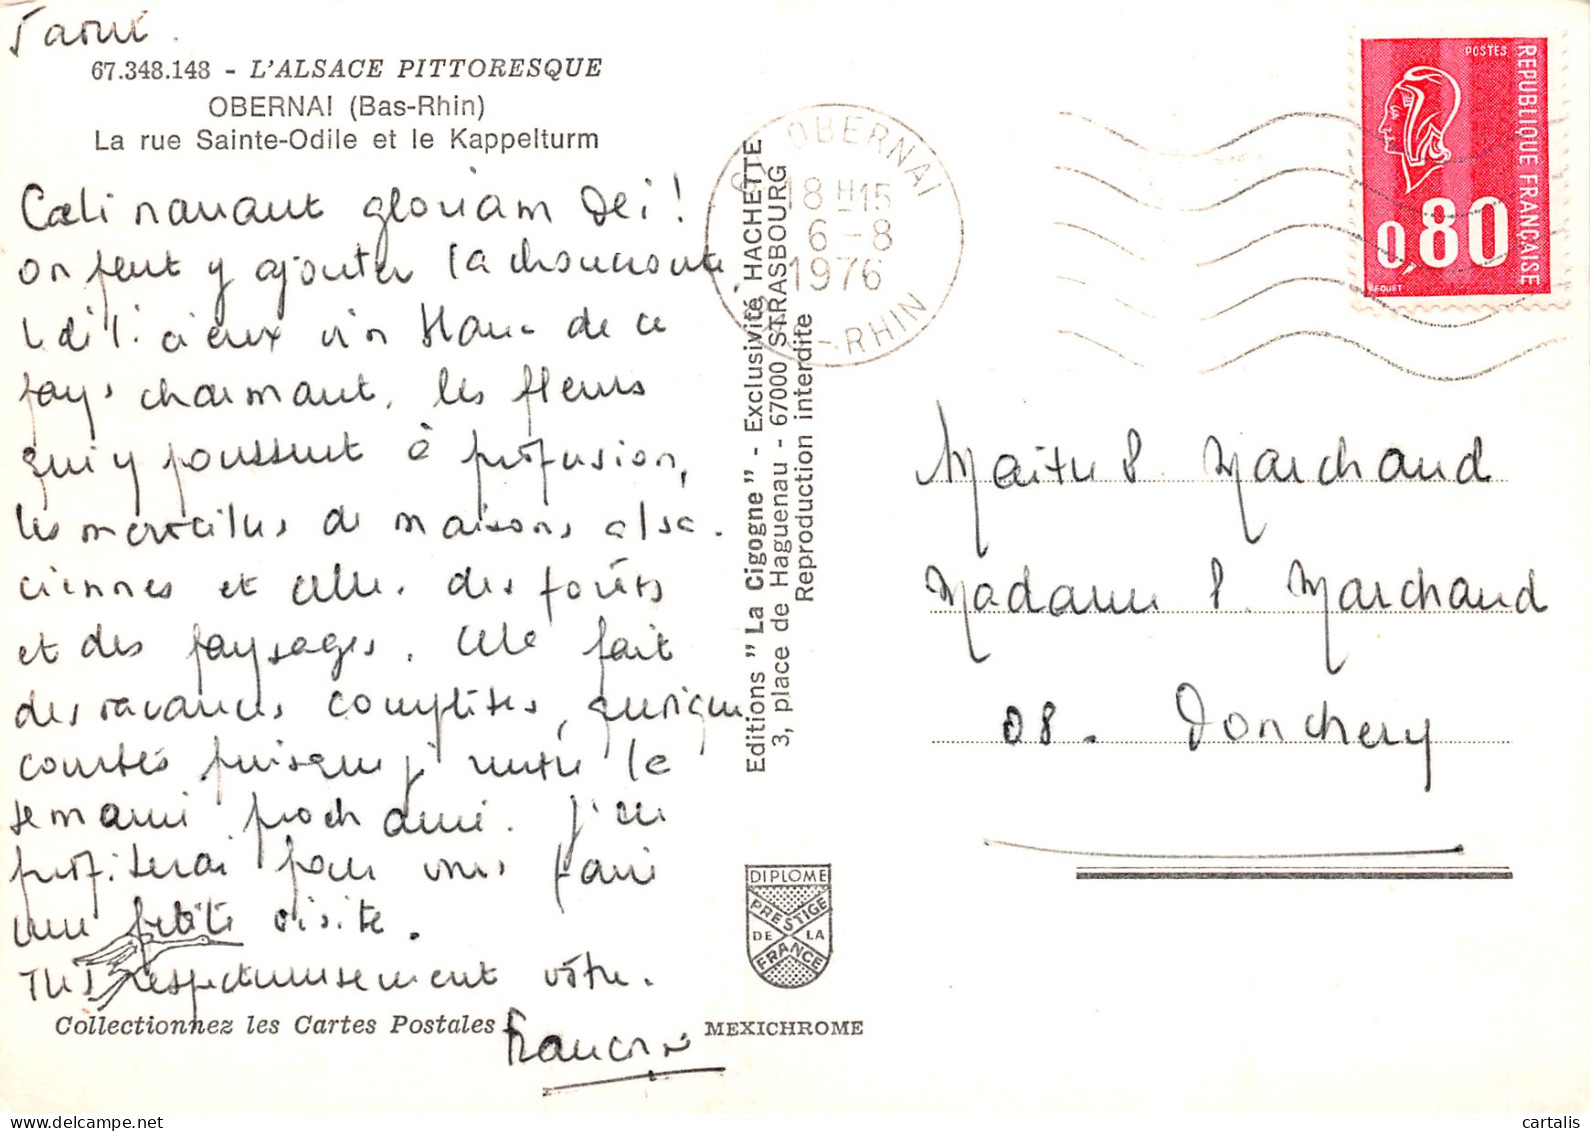 5 août.
67.348.148 - L'ALSACE PITTORESQUE
OBERNAI (Bas-Rhin)
La rue Sainte-Odile et le Kappelturm
Cœli narrant gloriam Dei !
on peut y ajouter la choucroute,
l délicieux vin blanc de ce
pays charmant, les fleurs
qui y poussent à profusion,
les merveilles de maisons alsa-
ciennes et celle, des forêts
et des paysages. Cela fait
des vacances complètes, quoique
courtes puisque j' rentre la
semaine prochaine. J'en
profiterai pour vous faire
une petite visite.
Très respectueusement vôtre.
Collectionnez les Cartes Postales
MEXICHROME
Editions "La Cigogne" - Exclusivité HACHETTE
3, place de Haguenau - 67000 STRASBOURG
Reproduction interdite
DIPLOME
PRESTIGE
DE LA
FRANCE
OBERNAI
18 H 15
6-8
1976
-RHIN
POSTES
REPUBLIQUE FRANÇAISE
0,80
BEQUET
Maître P. Marchand
Madame P. Marchand
08. Donchery
cartalis